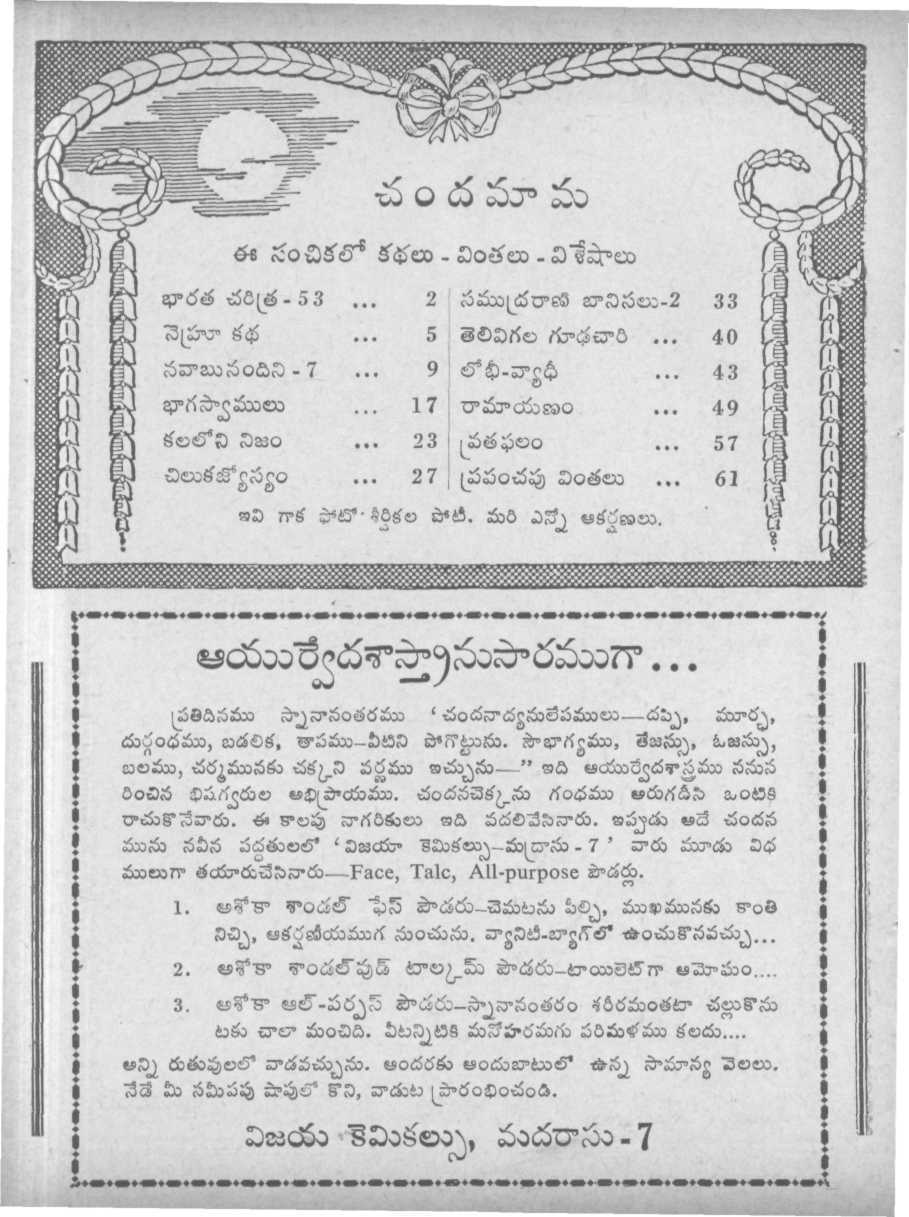 చందమామ
ఈ సంచికలో కథలు - వింతలు - విశేషాలు
భారత చరిత్ర - 53 ... 2
నెహ్రూ కథ ... 5
నవాబునందిని - 7 ... 9
భాగస్వాములు ... 17
కలలోని నిజం ... 23
చిలుకజ్యోస్యం ... 27
సముద్రరాణి బానిసలు-2 33
తెలివిగల గూఢచారి ... 40
లోభీ-వ్యాధీ ... 43
రామాయణం ... 49
వ్రతఫలం ... 57
ప్రపంచపు వింతలు ... 61
ఇవి గాక ఫోటో శీర్షికల పోటీ. మరి ఎన్నో ఆకర్షణలు.
ఆయుర్వేదశాస్త్రానుసారముగా...
ప్రతిదినము స్నానానంతరము ‘చందనాద్యనులేపములు—దప్పి, మూర్ఛ,
దుర్గంధము, బడలిక, తాపము—వీటిని పోగొట్టును. సౌభాగ్యము, తేజస్సు, ఓజస్సు,
బలము, చర్మమునకు చక్కని వర్ణము ఇచ్చును—” ఇది ఆయుర్వేదశాస్త్రము ననుస
రించిన భిషగ్వరుల అభిప్రాయము. చందనచెక్కను గంధము అరుగదీసి ఒంటికి
రాచుకొనేవారు. ఈ కాలపు నాగరికులు ఇది వదలివేసినారు. ఇప్పుడు అదే చందన
మును నవీన పద్ధతులలో ‘విజయా కెమికల్సు—మద్రాసు - 7’ వారు మూడు విధ
ములుగా తయారుచేసినారు—Face, Talc, All-purpose పౌడర్లు.
1. అశోకా శాండల్ ఫేస్ పౌడరు—చెమటను పీల్చి, ముఖమునకు కాంతి
నిచ్చి, ఆకర్షణీయముగ నుంచును. వ్యానిటీ-బ్యాగ్‌లో ఉంచుకొనవచ్చు...
2. అశోకా శాండల్‌వుడ్ టాల్కమ్ పౌడరు—టాయిలెట్‌గా అమోఘం....
3. అశోకా ఆల్-పర్పస్ పౌడరు—స్నానానంతరం శరీరమంతటా చల్లుకొను
టకు చాలా మంచిది. వీటన్నిటికి మనోహరమగు పరిమళము కలదు....
అన్ని రుతువులలో వాడవచ్చును. అందరకు అందుబాటులో ఉన్న సామాన్య వెలలు.
నేడే మీ సమీపపు షాపులో కొని, వాడుట ప్రారంభించండి.
విజయ కెమికల్సు, మదరాసు - 7